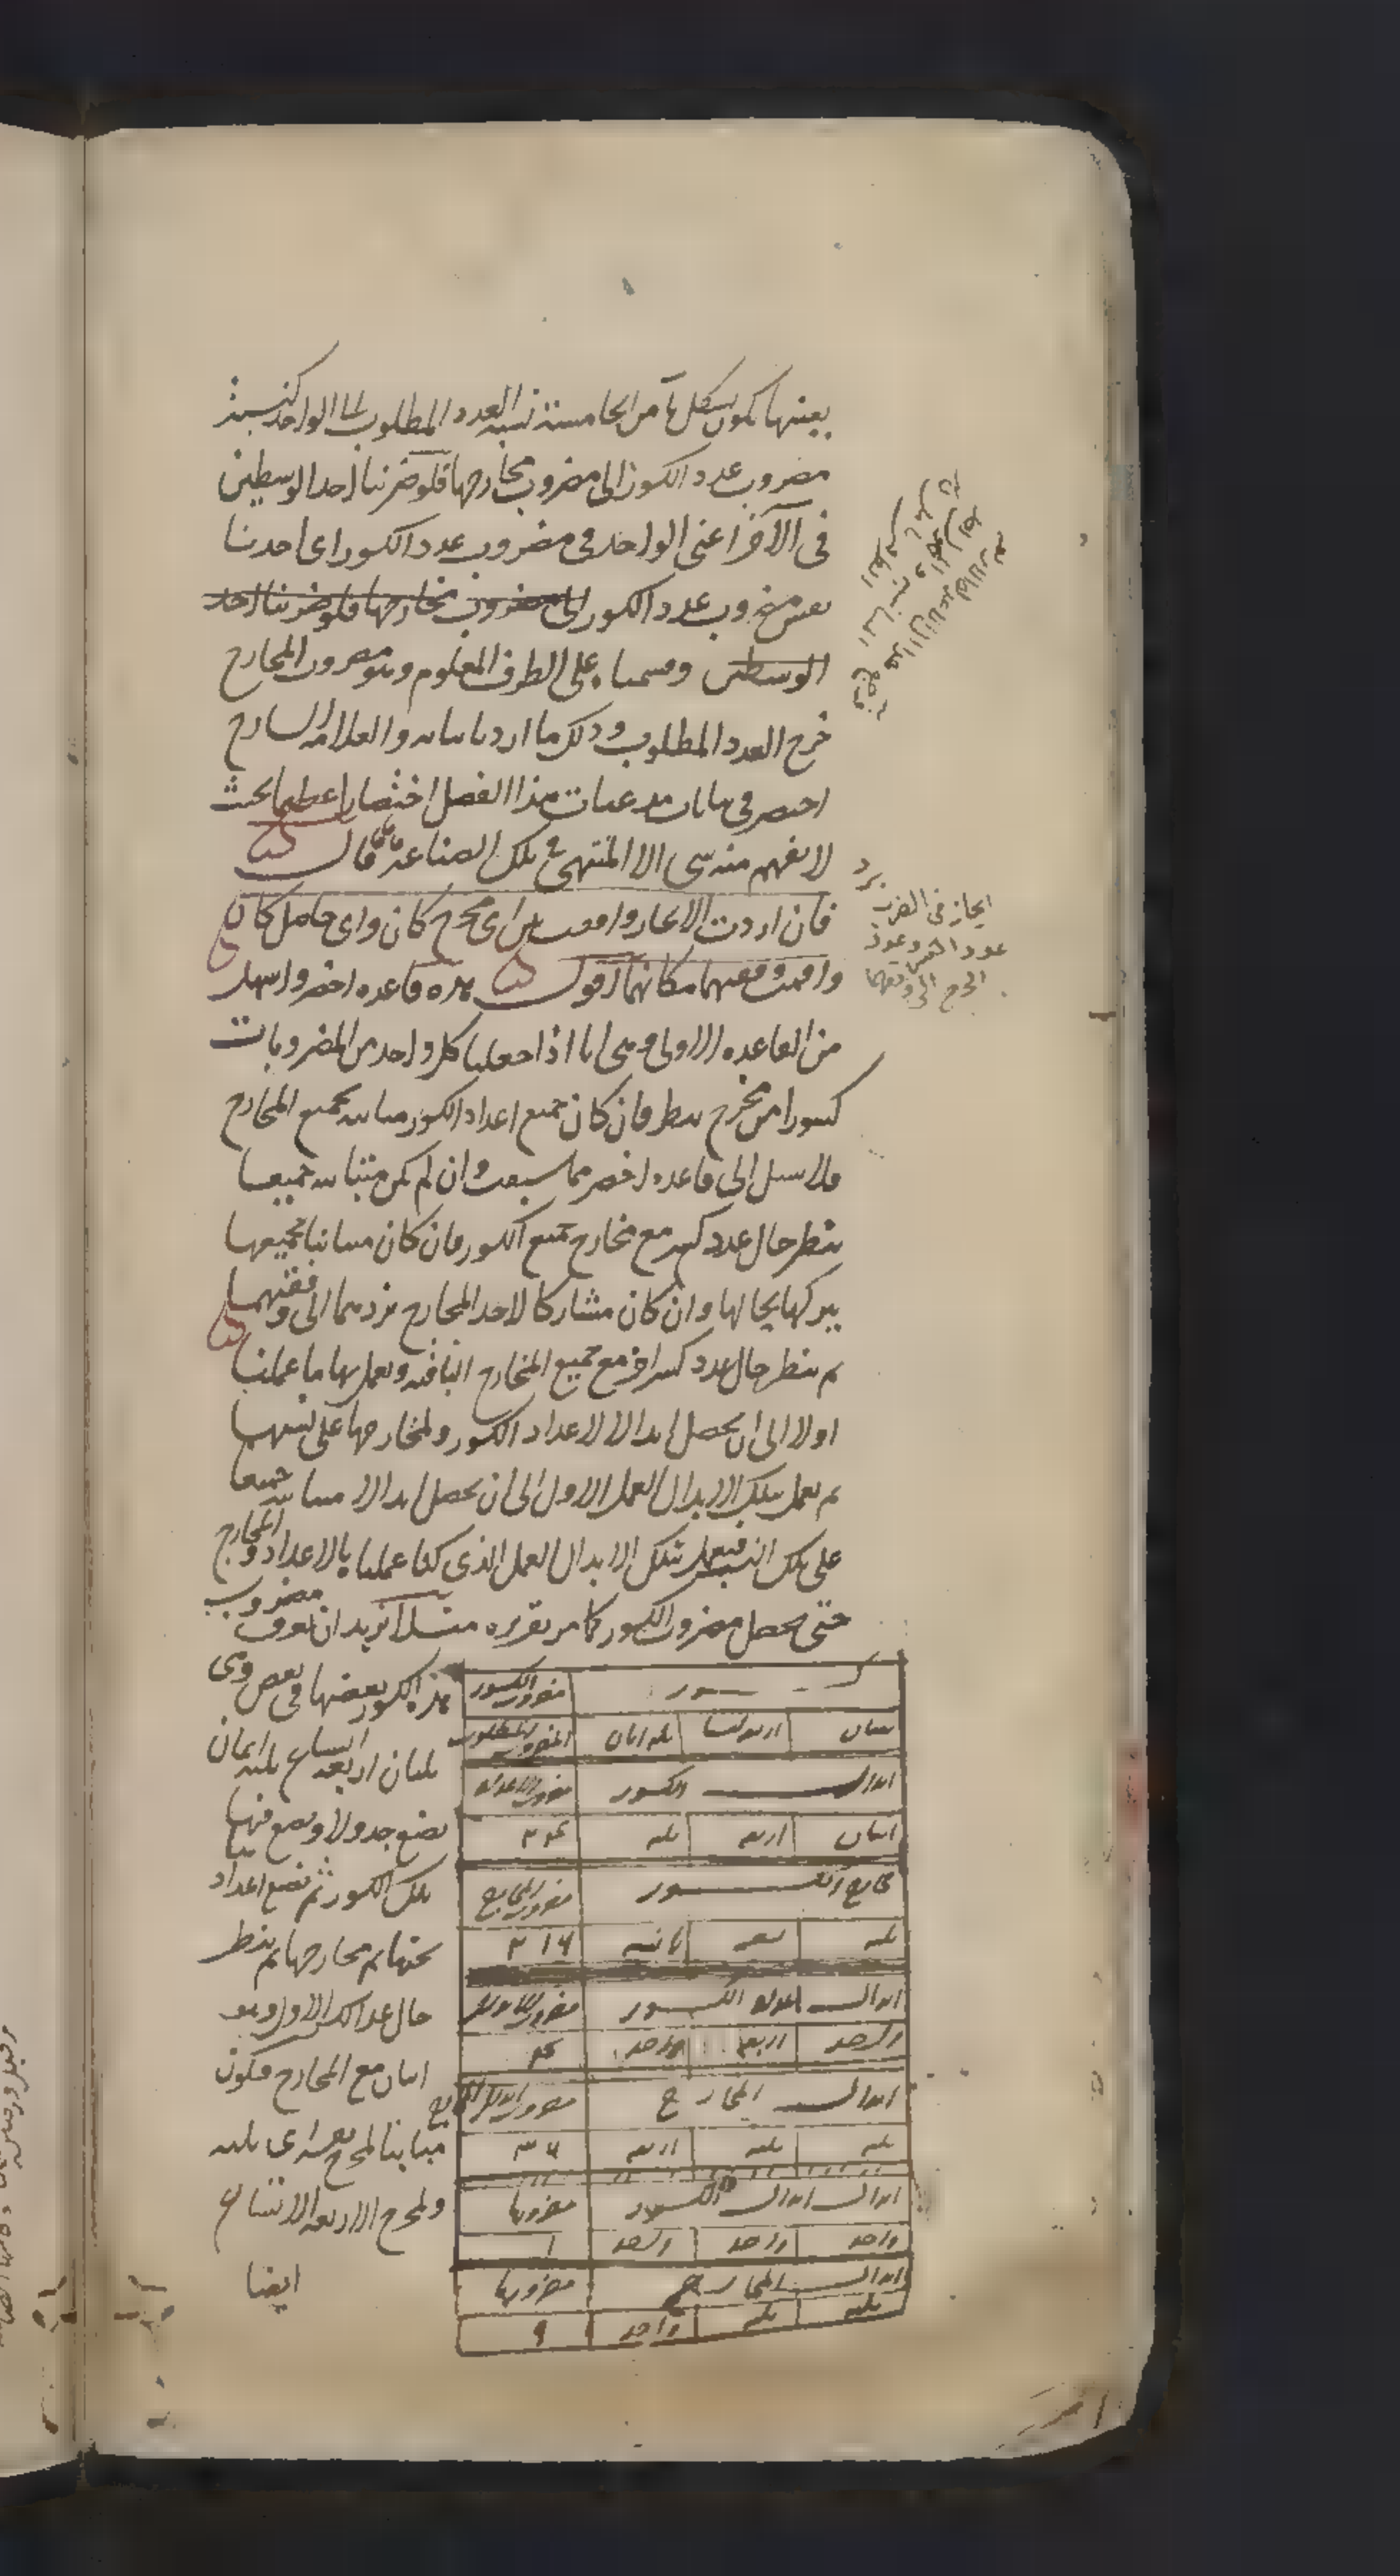 بعينها يكون بشكل ما من الخامسة نسبة العدد المطلوب الى الواحد كنسبة
مضروب عدد الكسور الى مضروب مخارجها فلو ضربنا احد الوسطين
فى الآخر اعنى الواحد فى مضروب عدد الكسور اى اخذنا
مضروب عدد الكسور الى مضروب مخارجها فلو ضربنا احد
الوسطين وقسمناه على الطرف المعلوم وهو مضروب المخارج
خرج العدد المطلوب وذلك ما اردنا بيانه والعلامه الشارح
اختصر فى بيان مدعيات هذا الفصل اختصارا عظيما بحيث
لا يفهم منه شى الا المنتهى فى تلك الصناعة قال
فان اردت الايجاز وافقت بين اى مخرج كان واى حاصل كان
واقمت وفقيهما مكانهما اقول هذه قاعده اخصر واسهل
من القاعده الاولى وهى انا اذا جعلنا كل واحد من المضروبات
كسورا من مخرج ننظر فان كان جميع اعداد الكسور مباينه لجميع المخارج
فلا سبيل الى قاعده اخصر مما سبقت وان لم يكن متباينه جميعا
ننظر حال عدد كسر مع مخارج جميع الكسور فان كان مباينا لجميعها
نتركها بحالها وان كان مشاركا لاحد المخارج نردهما الى وفقيهما
ثم ننظر حال عدد كسر اخر مع جميع المخارج الباقيه ونعمل بها ما عملنا
اولا الى ان يحصل ابدال لاعداد الكسور ولمخارجها على نسبتها
ثم نعمل بتلك الابدال العمل الاول الى ان يحصل ابدالا متباينه جميعا
على تلك النسب فنعمل بتلك الابدال العمل الذى كنا عملنا بالاعداد والمخارج
حتى يحصل مضروب الكسور كما مر تقريره مثلا نريد ان نعرف مضروب
هذه الكسور بعضها فى بعض وهى
ثلثان اربعة اتساع ثلثه اثمان
نضع جدولا ونضع فيها
تلك الكسور ثم نضع اعداد
تحتها ثم مخارجها ثم ننظر
حال عدد الكسر الاول وهو
اثنان مع المخارج فيكون
مباينا لمخرج نفسه اى ثلثه
ولمخرج الاربعه الاتساع
ايضا
ايجاز فى الضرب برد
عدد الكسر وعدد
المخرج الى وفقهما
كسور مضروب الكسور
ثلثان اربعة اتساع ثلثه اثمان المضروب المطلوب
اعداد الكسور مضروب الاعداد
اثنان اربعه ثلثه ٢٤
مخارج الكسور مضروب المخارج
ثلثه تسعه ثمانيه ٢١٦
ابدال اعداد الكسور
واحد اربعه واحد ٤
ابدال المخارج مضروب ابدال المخارج
ثلثه ثلثه اربعه ٣٦
ابدال ابدال الكسور مضروبها
واحد واحد واحد ١
ابدال المخارج مضروبها
ثلثه ثلثه واحد ٩